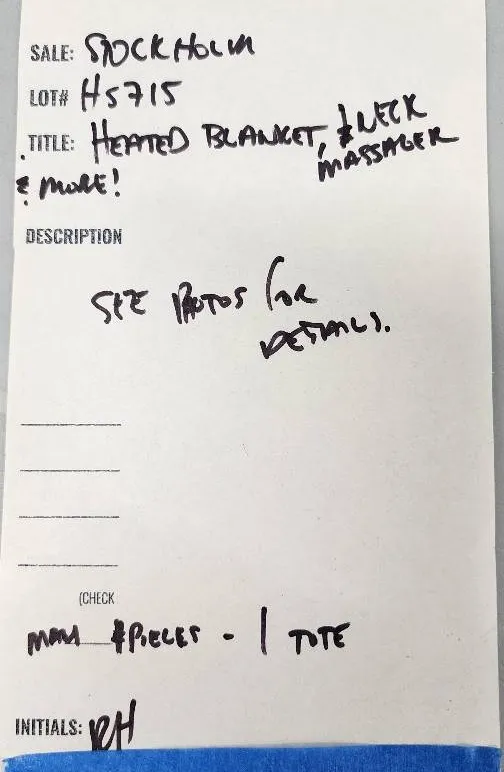 SALE: STOCKHOLM
LOT# H5715
TITLE: HEATED BLANKET, & NECK
MASSAGER
& MORE!
DESCRIPTION
SEE PHOTOS FOR
DETAILS.
(CHECK
#PIECES - 1 TOTE
INITIALS: RH